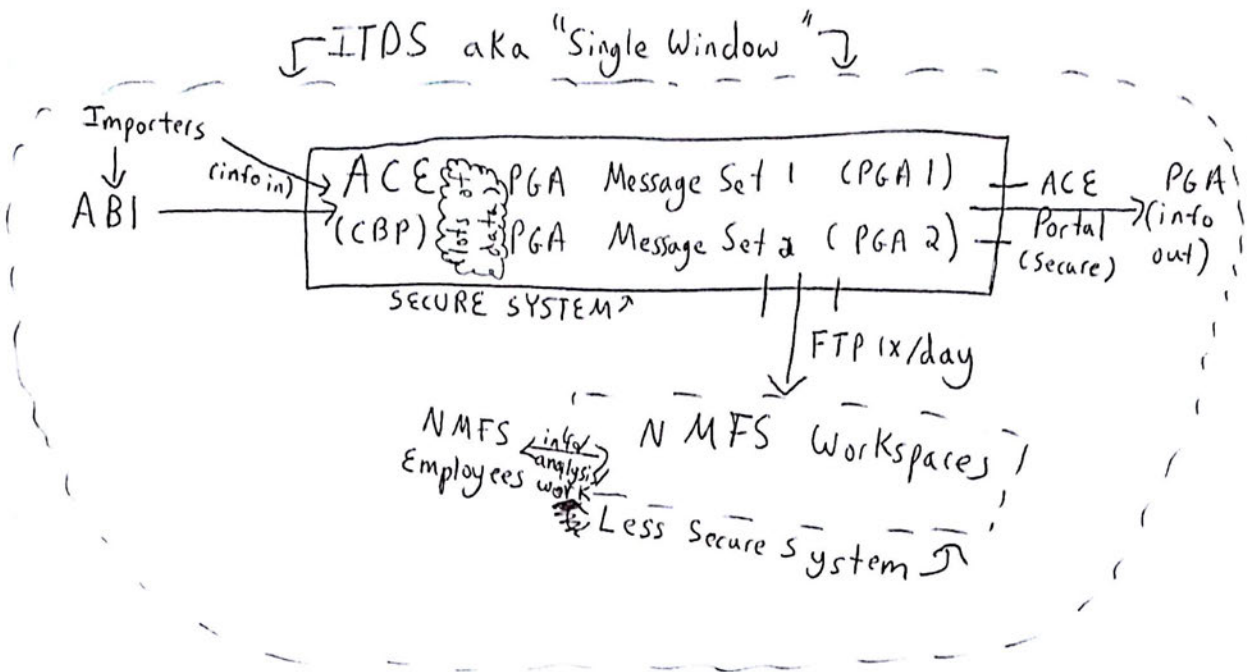 ITDS aka "Single Window"
Importers
(info in)
ABI
ACE
(CBP)
lots of
data
PGA Message Set 1 (PGA 1)
PGA Message Set 2 (PGA 2)
SECURE SYSTEM
ACE
Portal
(Secure)
PGA
(info
out)
FTP 1x/day
NMFS
Employees
info
analysis
work
NMFS Workspaces
Less Secure System